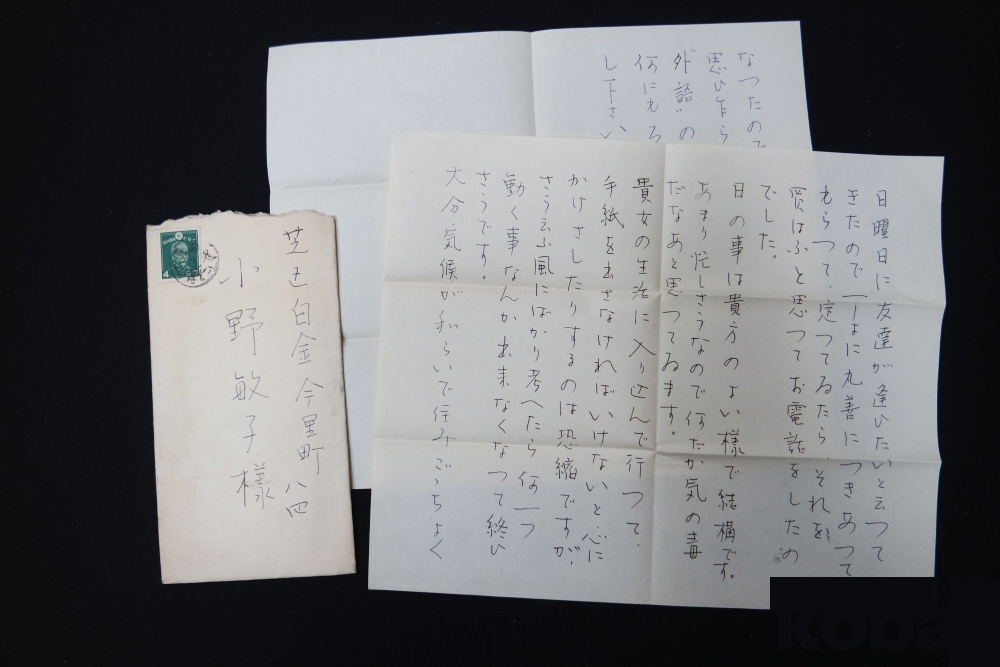 日曜日に友達が逢ひたいと云つて
きたので一しよに丸善につきあつて
もらつて、定つてゐたら、それを
買はふと思つてお電話をしたの
でした。
日の事は貴方のよい様で結構です。
あまり忙しさうなので何だか気の毒
だなあと思つてゐます。
貴女の生活に入り込んで行つて、
手紙を出さなければいけないと、心に
かけさしたりするのは恐縮ですが、
さう云ふ風にばかり考へたら何一つ
動く事なんか出来なくなつて終ひ
さうです。
大分気候が和らいで住みごゝちよく
なつたので
思ひ乍ら
外語〃の
何にもろ
し下さい
芝区白金今里町八四
小野敏子様
4
koba